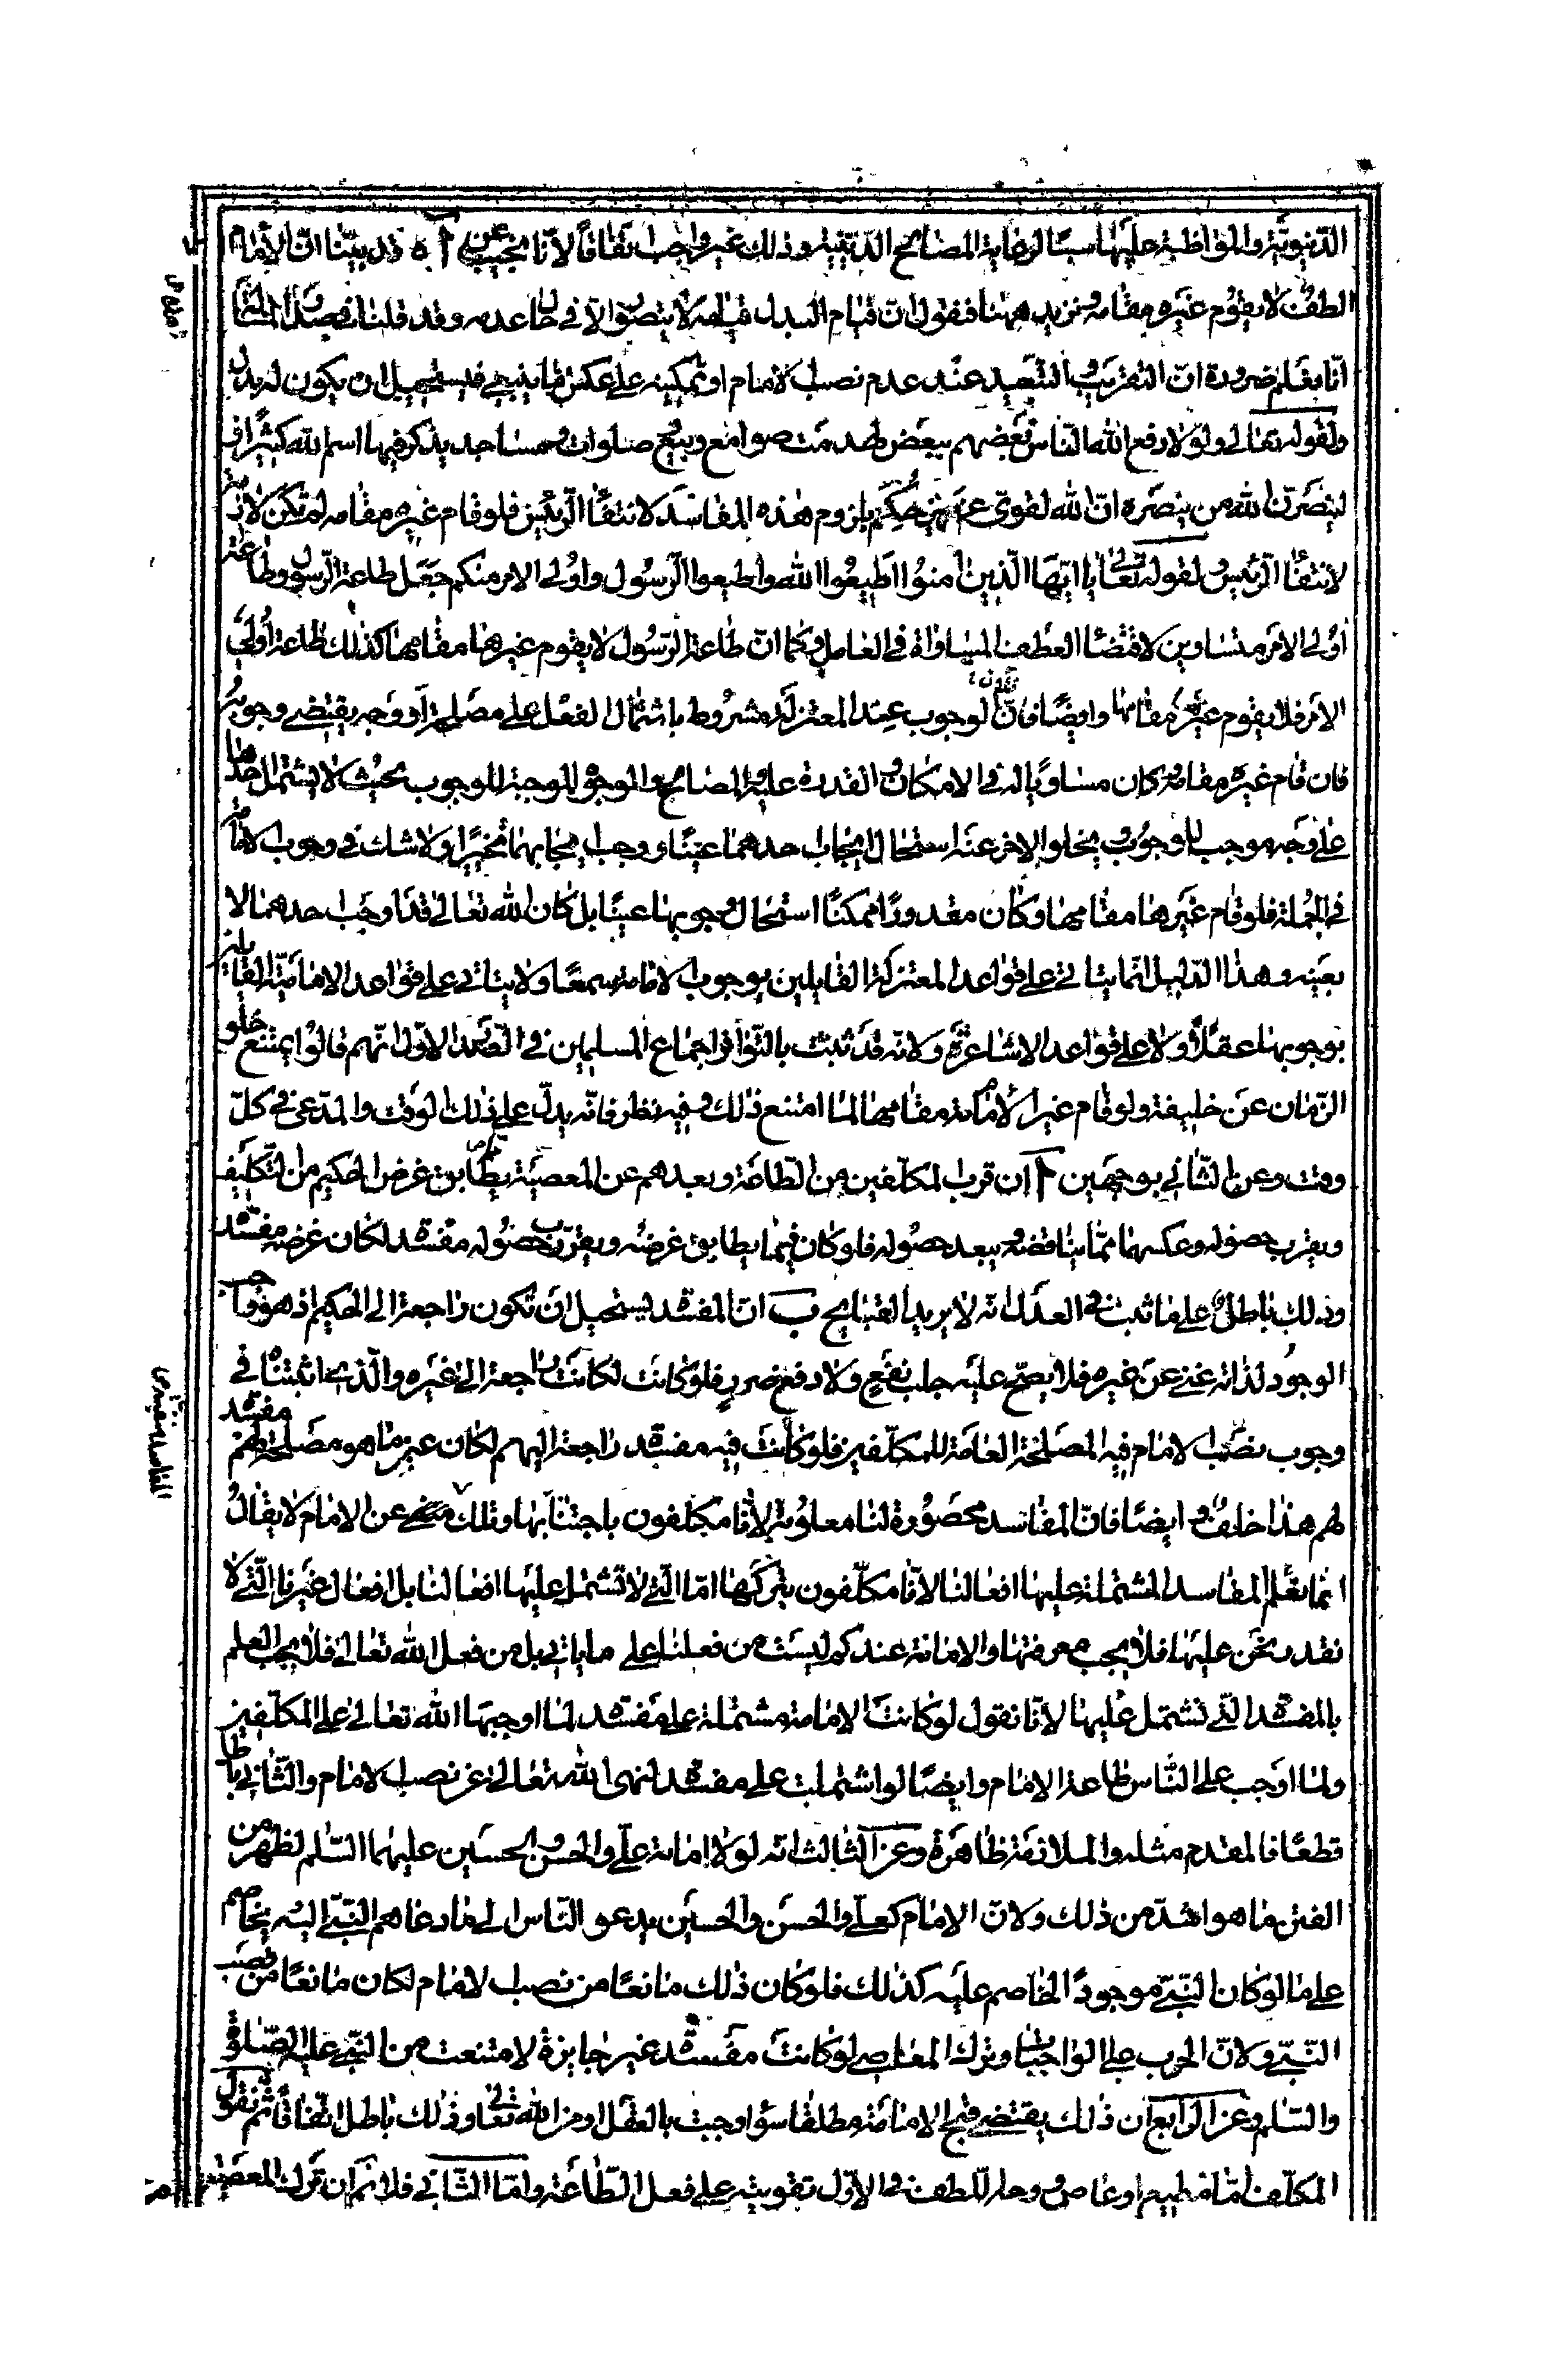 الدّنيويّة والمواظبة عليها سببًا لرعاية المصالح الدّينيّة وذلك غير واجب اتفاقاً لانا نجيب عن آ ه قد بيّنّا انّ الامام
لطف ولا يقوم غيره مقامه ونزيد ههنا فنقول ان قيام البدل مقامه لا يتصوّر الاّ فى حال عدمه وقد قلنا فى
انّا نعلم ضرورة انّ التقريب والتبعيد عند عدم نصب الامام او تمكينه على عكس ما ينبغي فيستحيل ان يكون له بدل
ولقوله تعالى ولولا دفع الله النّاس بعضهم ببعض لهدمت صوامع وبيع وصلوات ومساجد يذكر فيها اسم الله كثيرًا
لينصرنّ الله من ينصره انّ الله لقوىّ عزيز حكم بلزوم هذه المفاسد لانتفاء الرّئيس فلو قام غيره مقامه لم تكن لازمة
لانتفاء الرّئيس ولقوله تعالى يا ايّها الّذين امنوا اطيعوا الله واطيعوا الرّسول واولى الامر منكم جعل طاعة الرّسول وطاعة
اولى الامر متساويين لاقتضاء العطف المساواة فى العامل وكما انّ طاعة الرّسول لا يقوم غيرها مقامها كذلك طاعة اولى
الامر فلا يقوم غيرها مقامها وايضًا فانّ الوجوب عند المعتزلة مشروط باشتمال الفعل على مصلحة او وجه يقتضى وجوبه
فان قام غيره مقامه وكان مساويًا له فى الامكان والقدرة عليه والمصالح والوجوه الموجبة للوجوب بحيث لا يشتمل احدهما
على وجه موجب للوجوب يخلو الاخر عنه استحال ايجاب احدهما عينًا ووجب ايجابهما تخييرًا ولا شك فى وجوب الامامة
فى الجملة فلو قام غيرها مقامها وكان مقدورًا ممكنًا استحال وجوبها عينًا بل كان الله تعالى قد اوجب احدهما لا
بعينه وهذا الدّليل انّما يتاتى على قواعد المعتزلة القايلين بوجوب الامامة سمعًا ولا يتاتى على قواعد الاماميّة القايلين
بوجوبها عقلاً ولا على قواعد الاشاعرة ولانّه قد ثبت بالتّواتر اجماع المسلمين فى الصّدر الاوّل انّهم قالوا يمتنع خلو
الزّمان عن خليفة ولو قام غير الامامة مقامها لما امتنع ذلك وفيه نظر فانّه يدلّ على ذلك الوقت والمدّعى فى كلّ
وقت وعن الثّانى بوجهين آ ان قرب المكلّفين من الطّاعة وبعدهم عن المعصية يطابق غرض الحكيم من التّكليف
ويقرب حصوله وعكسهما ممّا يناقضه ويبعد حصوله فلو كان فيما يطابق غرضه ويقرّب حصوله مفسدة لكان غرضه مفسدة
وذلك باطل على ما ثبت فى العدل انّه لا يريد القبايح ب انّ المفسدة يستحيل ان تكون راجعة الى الحكيم اذ هو واجب
الوجود لذاته غنى عن غيره فلا يصحّ عليه جلب نفع ولا دفع ضرر فلو كانت لكانت راجعة الى غيره والّذى اثبتناه فى
وجوب نصب الامام فيه المصلحة العامّة للمكلّفين فلو كانت فيه مفسدة راجعة اليهم لكان عين ما هو مصلحة لهم مفسدة
لهم هذا خلف وايضًا فانّ المفاسد محصورة لنا معلومة لانّا مكلّفون باجتنابها وتلك منتفية عن الامام لا يقال
انّما نعلم المفاسد المشتملة عليها افعالنا لانّا مكلّفون بتركها امّا الّتى لا تشتمل عليها افعالنا بل افعال غيرنا الّتى لا
نقدر نحن عليها فلا يجب معرفتها والامامة عندكم ليست من فعلنا على ما ياتى بل من فعل الله تعالى فلا يجب العلم
بالمفسدة الّتى تشتمل عليها لانّا نقول لو كانت الامامة مشتملة على مفسدة لما اوجبها الله تعالى على المكلّفين
ولما اوجب على النّاس طاعة الامام وايضًا لو اشتملت على مفسدة لنهى الله تعالى عن نصب الامام والثّانى باطل
قطعًا فالمقدم مثله والملازمة ظاهرة وعن الثالث انّه لولا امامة علىّ والحسن والحسين عليهما السّلم لظهر من
الفتن ما هو اشدّ من ذلك ولانّ الامام كعلىّ والحسن والحسين يدعو النّاس الى ما دعاهم النّبىّ اليه يخاصم
على ما لو كان النّبىّ موجودًا لخاصم عليه كذلك فلو كان ذلك مانعًا من نصب الامام لكان مانعًا من نصب
النّبىّ ولانّ الحرب على الواجبات وترك المعاصى لو كانت مفسدة غير جايزة لامتنعت من النّبى عليه الصّلوة
والسّلم وعن الرّابع ان ذلك يقتضى قبح الامامة مطلقا سواء وجبت بالعقل او من الله تعالى وذلك باطل اتفاقًا ثم نقول
المكلّف امّا مطيع او عاص وحال اللّطف فى الاوّل تقويته على فعل الطّاعة وامّا الثّانى فلا نم ان ترك المعصية